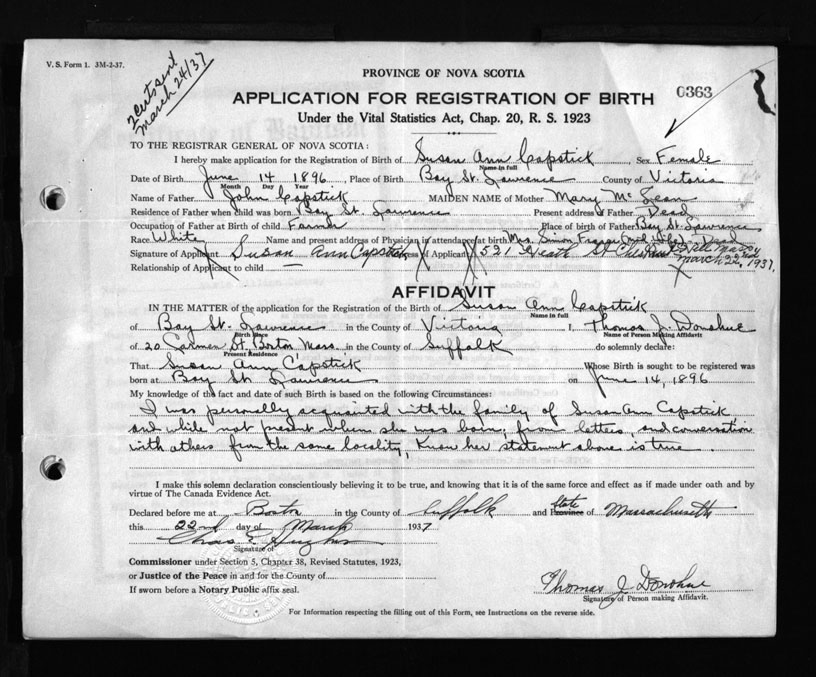 V. S. Form 1. 3M-2-37.
2 certs sent
March 24/37
PROVINCE OF NOVA SCOTIA
0363
APPLICATION FOR REGISTRATION OF BIRTH
Under the Vital Statistics Act, Chap. 20, R. S. 1923
TO THE REGISTRAR GENERAL OF NOVA SCOTIA:
I hereby make application for the Registration of Birth of Susan Ann Capstick, Sex Female
Name in full
Date of Birth June 14 1896, Place of Birth Bay St. Lawrence County of Victoria
Month Day Year
Name of Father John Capstick MAIDEN NAME of Mother Mary McLean
Residence of Father when child was born Bay St. Lawrence Present address of Father Dead
Occupation of Father at Birth of child Farmer Place of birth of Father Bay St. Lawrence
Race White Name and present address of Physician in attendance at birth Mrs. Simon Fraser Dead
Signature of Applicant Susan Ann Capstick of Applicant 521 Heath St Chestnut Hill Mass March 22nd, 1937.
Relationship of Applicant to child —
AFFIDAVIT
IN THE MATTER of the application for the Registration of the Birth of Susan Ann Capstick
Name in full
of Bay St. Lawrence in the County of Victoria I, Thomas J. Donahue
Birth Place Name of Person Making Affidavit
of 20 Carmen St. Boston Mass. in the County of Suffolk do solemnly declare:
Present Residence
That Susan Ann Capstick Whose Birth is sought to be registered was
born at Bay St. Lawrence on June 14, 1896
My knowledge of the fact and date of such Birth is based on the following Circumstances:
I was personally acquainted with the family of Susan Ann Capstick,
and while not present when she was born, from letters and conversation
with others from the same locality, Know her statement above is true.
I make this solemn declaration conscientiously believing it to be true, and knowing that it is of the same force and effect as if made under oath and by
virtue of The Canada Evidence Act.
Declared before me at Boston in the County of Suffolk and State Province of Massachusetts
this 22nd day of March 1937
Chas E Hughes
Signature of
Commissioner under Section 5, Chapter 38, Revised Statutes, 1923,
or Justice of the Peace in and for the County of
If sworn before a Notary Public affix seal.
Thomas J Donahue
Signature of Person making Affidavit.
For Information respecting the filling out of this Form, see Instructions on the reverse side.